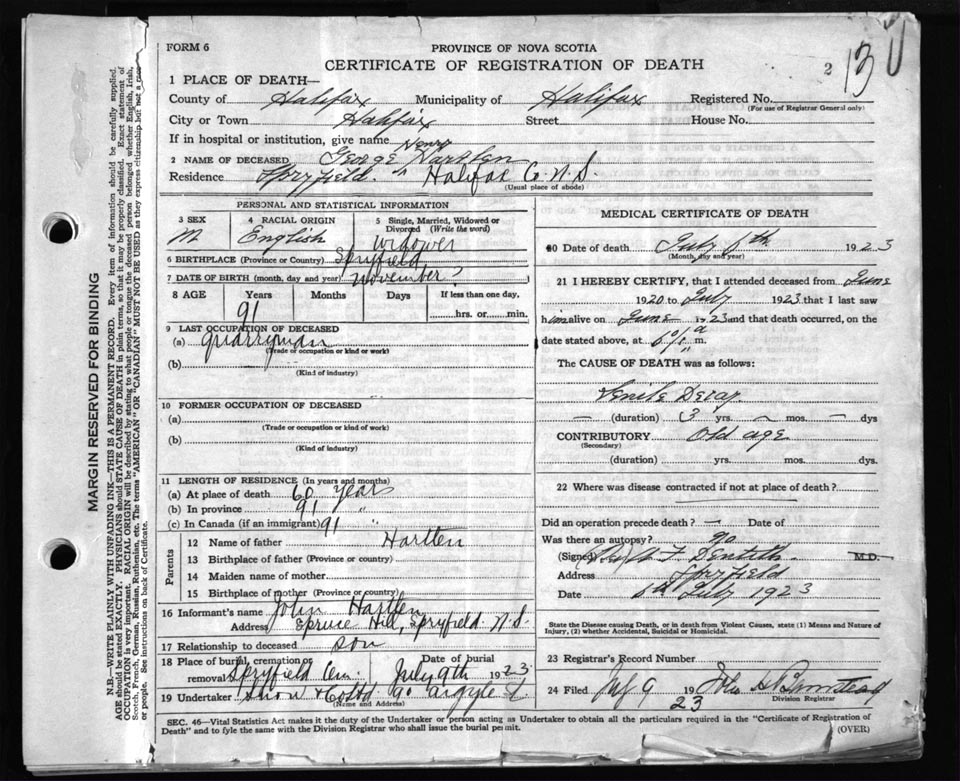 FORM 6
PROVINCE OF NOVA SCOTIA
CERTIFICATE OF REGISTRATION OF DEATH
2 130
1 PLACE OF DEATH—
County of Halifax Municipality of Halifax Registered No.
(For use of Registrar General only)
City or Town Halifax Street House No.
If in hospital or institution, give name
Henry
2 NAME OF DECEASED George Hartlen
Residence Spryfield. Halifax Co. N.S.
(Usual place of abode)
PERSONAL AND STATISTICAL INFORMATION
3 SEX 4 RACIAL ORIGIN 5 Single, Married, Widowed or Divorced (Write the word)
M English Widower
6 BIRTHPLACE (Province or Country) Spryfield
7 DATE OF BIRTH (month, day and year) November ?
8 AGE Years Months Days If less than one day.
91 hrs. or min.
9 LAST OCCUPATION OF DECEASED
(a) Quarryman
(Trade or occupation or kind or work)
(b)
(Kind of industry)
10 FORMER OCCUPATION OF DECEASED
(a)
(Trade or occupation or kind of work)
(b)
(Kind of industry)
11 LENGTH OF RESIDENCE (In years and months)
(a) At place of death 60 years
(b) In province 91 "
(c) In Canada (if an immigrant) 91 "
Parents
12 Name of father Hartlen
13 Birthplace of father (Province or country)
14 Maiden name of mother
15 Birthplace of mother (Province or country)
16 Informant's name John Hartlen
Address Spruce Hill, Spryfield. N.S.
17 Relationship to deceased son
18 Place of burial, cremation or removal Spryfield Cem. Date of burial July 9th 1923
19 Undertaker Snow & Co Ltd 90 Argyle St
(Name and Address)
MEDICAL CERTIFICATE OF DEATH
20 Date of death July 6th 1923
(Month, day and year)
21 I HEREBY CERTIFY, that I attended deceased from June
1920 to July 1923 that I last saw
him alive on June 1923 and that death occurred, on the
date stated above, at m.
The CAUSE OF DEATH was as follows:
Senile Decay
— (duration) 3 yrs. — mos. — dys
CONTRIBUTORY Old age
(Secondary)
(duration) yrs. mos. dys.
22 Where was disease contracted if not at place of death?
Did an operation precede death? — Date of
Was there an autopsy? no
(Signed) M.D.
Address Spryfield
Date 6th July 1923
State the Disease causing Death, or in death from Violent Causes, state (1) Means and Nature of Injury, (2) whether Accidental, Suicidal or Homicidal.
23 Registrar's Record Number
24 Filed July 9 1923 John H Barnstead
Division Registrar
SEC. 46—Vital Statistics Act makes it the duty of the Undertaker or person acting as Undertaker to obtain all the particulars required in the "Certificate of Registration of
Death" and to fyle the same with the Division Registrar who shall issue the burial permit. (OVER)
MARGIN RESERVED FOR BINDING
N.B—WRITE PLAINLY WITH UNFADING INK—THIS IS A PERMANENT RECORD. Every item of information should be carefully supplied.
AGE should be stated EXACTLY. PHYSICIANS should STATE CAUSE OF DEATH in plain terms, so that it may be properly classified. Exact statement of
OCCUPATION is very important. RACIAL ORIGIN will be described by stating to what people or tongue the deceased person belonged whether English, Irish,
Scotch, French, German, Russian, Ruthenian, etc. The terms "AMERICAN" OR "CANADIAN" MUST NOT BE USED as they express citizenship but not a race
or people. See instructions on back of Certificate.